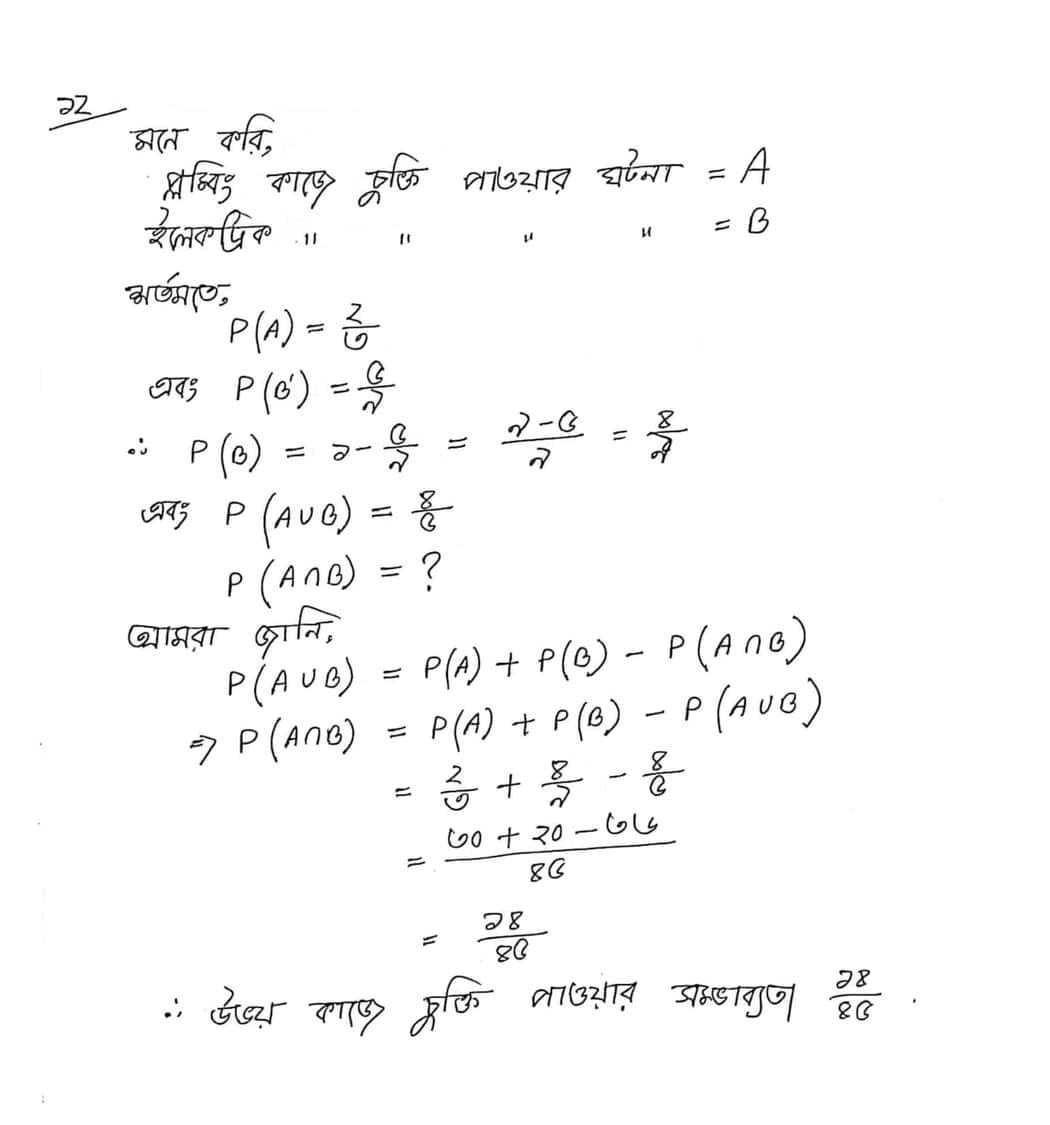 ১২
মনে করি,
প্লাম্বিং কাজে চুক্তি পাওয়ার ঘটনা = A
ইলেকট্রিক " " " " = B
শর্তমতে,
P(A) = ২/৩
এবং P(B') = ৫/৯
∴ P(B) = ১-৫/৯ = (৯-৫)/৯ = ৪/৯
এবং P(A∪B) = ৪/৫
P(A∩B) = ?
আমরা জানি,
P(A∪B) = P(A) + P(B) - P(A∩B)
⇒ P(A∩B) = P(A) + P(B) - P(A∪B)
= ২/৩ + ৪/৯ - ৪/৫
= (৩০ + ২০ - ৩৬)/৪৫
= ১৪/৪৫
∴ উভয় কাজে চুক্তি পাওয়ার সম্ভাব্যতা ১৪/৪৫ .